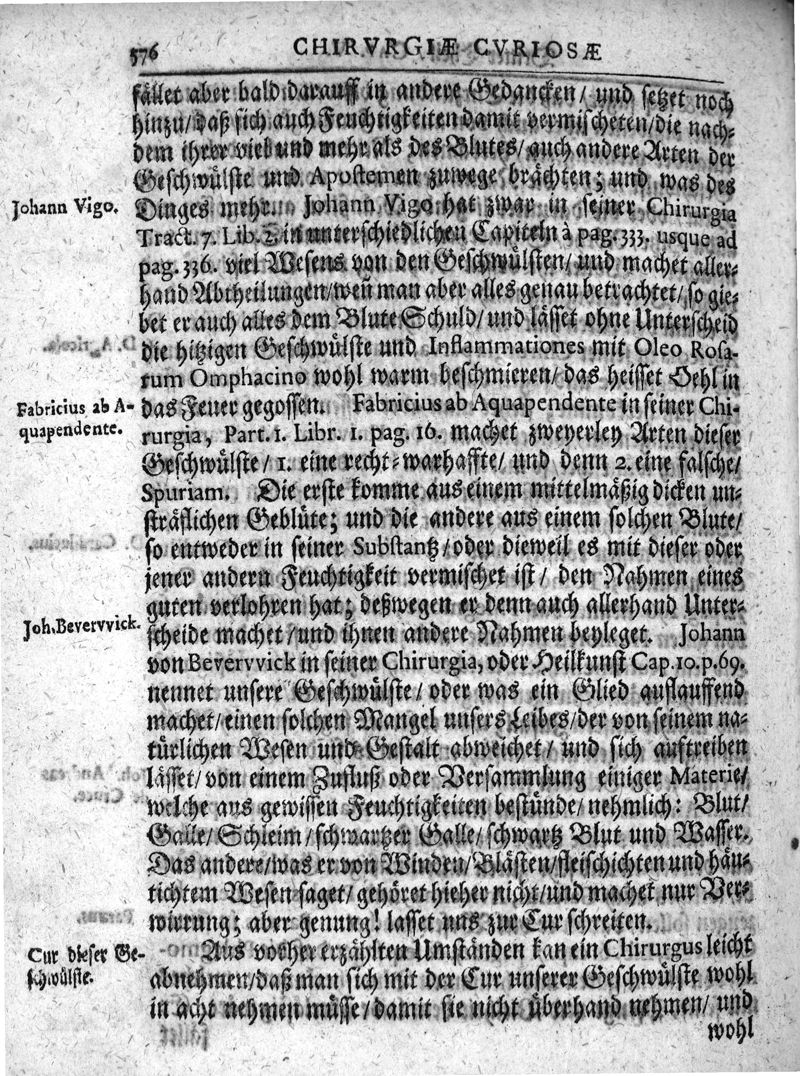 576 CHIRVRGIÆ CVRIOSÆ
fället aber bald darauff in andere Gedancken/ und setzet noch
hinzu/ daß sich auch Feuchtigkeiten damit vermischeten/ die nach-
dem ihrer viel und mehr als des Blutes/ auch andere Arten der
Geschwülste und Apostemen zuwege brächten; und was des
Johann Vigo.
Dinges mehr. Johann Vigo hat zwar in seiner Chirurgia
Tract. 7. Lib. 2. in unterschiedlichen Capiteln à pag. 333. usque ad
pag. 336. viel Wesens von den Geschwülsten/ und machet aller-
hand Abtheilungen/ weñ man aber alles genau betrachtet/ so gie-
bet er auch alles dem Blute Schuld/ und lässet ohne Unterscheid
die hitzigen Geschwülste und Inflammationes mit Oleo Rosa-
rum Omphacino wohl warm beschmieren/ das heisset Oehl in
Fabricius ab A-
quapendente.
das Feuer gegossen. Fabricius ab Aquapendente in seiner Chi-
rurgia, Part. 1. Libr. 1. pag. 16. machet zweyerley Arten dieser
Geschwülste/ 1. eine recht-warhaffte/ und denn 2. eine falsche/
Spuriam. Die erste komme aus einem mittelmäßig dicken un-
sträflichen Geblüte; und die andere aus einem solchen Blute/
so entweder in seiner Substantz/ oder dieweil es mit dieser oder
jener andern Feuchtigkeit vermischet ist/ den Nahmen eines
guten verlohren hat; deßwegen er denn auch allerhand Unter-
Joh. Bevervvick.
scheide machet/ und ihnen andere Nahmen beyleget. Johann
von Bevervvick in seiner Chirurgia, oder Heilkunst Cap. 10. p. 69.
nennet unsere Geschwülste/ oder was ein Glied auflauffend
machet/ einen solchen Mangel unsers Leibes/ der von seinem na-
türlichen Wesen und Gestalt abweichet/ und sich auftreiben
lässet/ von einem Zufluß oder Versammlung einiger Materie/
welche aus gewissen Feuchtigkeiten bestünde/ nehmlich: Blut/
Galle/ Schleim/ schwartzer Galle/ schwartz Blut und Wasser.
Das andere/ was er von Winden/ Blästen/ fleischichten und häu-
tichtem Wesen saget/ gehöret hieher nicht/ und machet nur Ver-
wirrung; aber genung! lasset uns zur Cur schreiten.
Cur dieser Ge-
schwülste.
Aus vorher erzählten Umständen kan ein Chirurgus leicht
abnehmen/ daß man sich mit der Cur unserer Geschwülste wohl
in acht nehmen müsse/ damit sie nicht überhand nehmen/ und
wohl